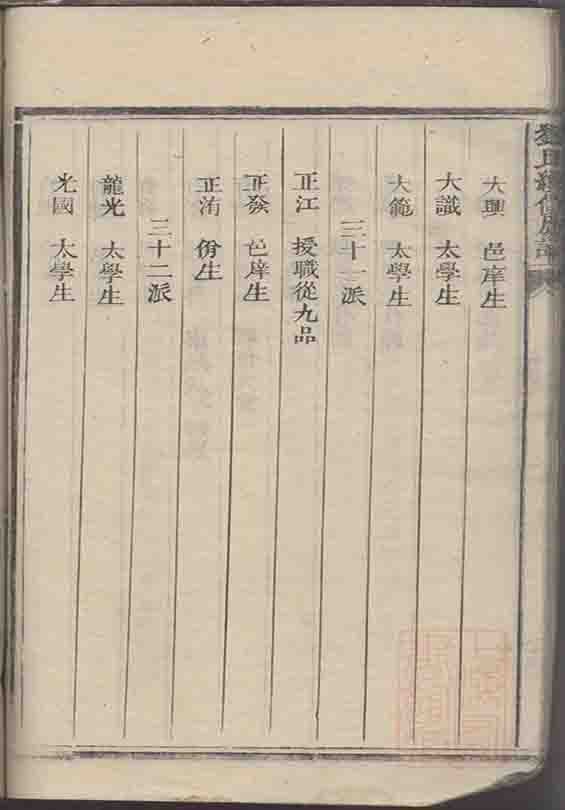 大興 邑庠生
大識 太學生
大範 太學生
三十一派
正江 授職從九品
正發 邑庠生
正洧 佾生
三十二派
龍光 太學生
光國 太學生